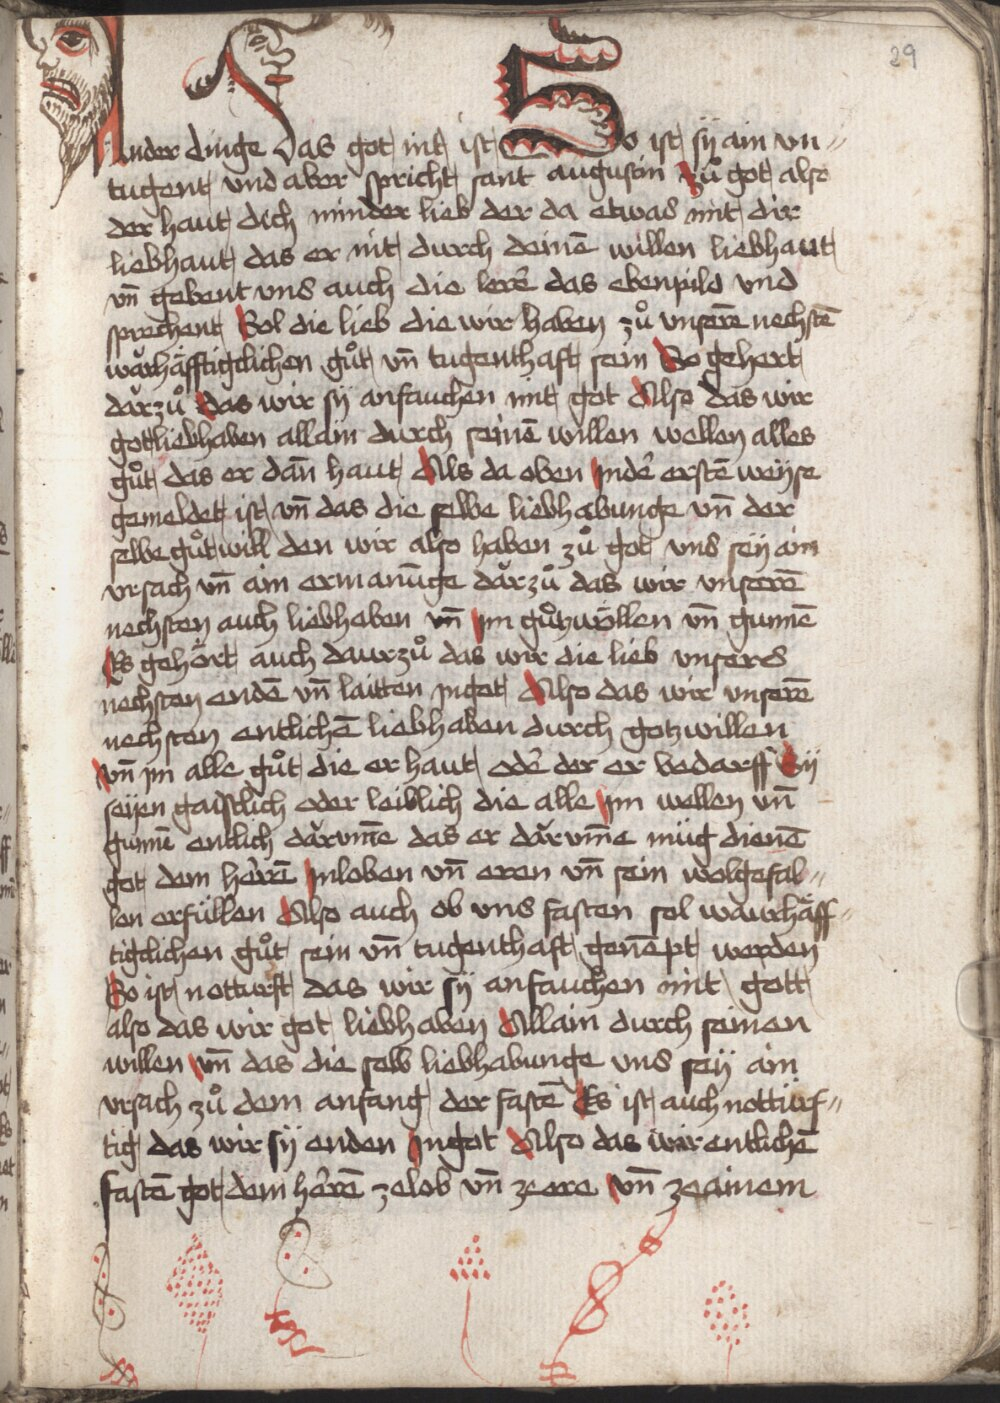 29
Ander dinge das got nit ist So ist sÿ ain vn„
tugent vnd aber spricht sant augustin zů got also
der haut dich minder lieb der da etwas mit dir
liebhaut das er nit durch deinē willen liebhaut
vn̄ gebent vns auch die lerē das ebenpild vnd
sprechent Sol die lieb die wir haben zů vnserē nechstē
warhäfftigclichen gůt vn̄ tugenthaft sein So gehert
darzů das wir sÿ anfauchen mit got Also das wir
got liebhaben allain durch seinē willen wellen alles
gůt das er dan̄ haut Als da oben Jnde͛ erstē weÿse
gemeldet ist vn̄ das die selbe liebhabunge vn̄ der
selbe gůtwill den wir also haben zů got vns seÿ ain
vrsach vn̄ ain ermanūge darzů das wir vnserē
nechsten auch liebhaben vn̄ jm gůtzwöllen vn̄ gunnē
Es gehört auch daurzů das wir die lieb vnsers
nechsten endē vn̄ laitten jngot Also das wir vnserē
nechsten entlichē liebhaben durch gotzwillen
vn̄ jm alle gůt die er haut ode͛ der er bedarff Sÿ
seÿen gaistlich oder leiblich die alle jm wellen vn̄
gunnē entlich darvm̄e das er darvm̄e müg dienē
got dem herrē Jnloben vn̄ eren vn̄ sein wolgefal„
len erfüllen Also auch ob vns fasten sol waurhäff„
tigclichen gůt sein vn̄ tugenthaft genēpt werden
So ist notturft das wir sÿ anfauchen mit gott
also das wir got liebhaben Allain durch seinen
willen vn̄ das die selb liebhabunge vns seÿ ain
vrsach zů dem anfang der fastē Es ist auch nottürf„
tig das wir sÿ enden Jngot Also das wir entlichē
fastē got dem herrē zelob vn̄ zeere vn̄ zeainem